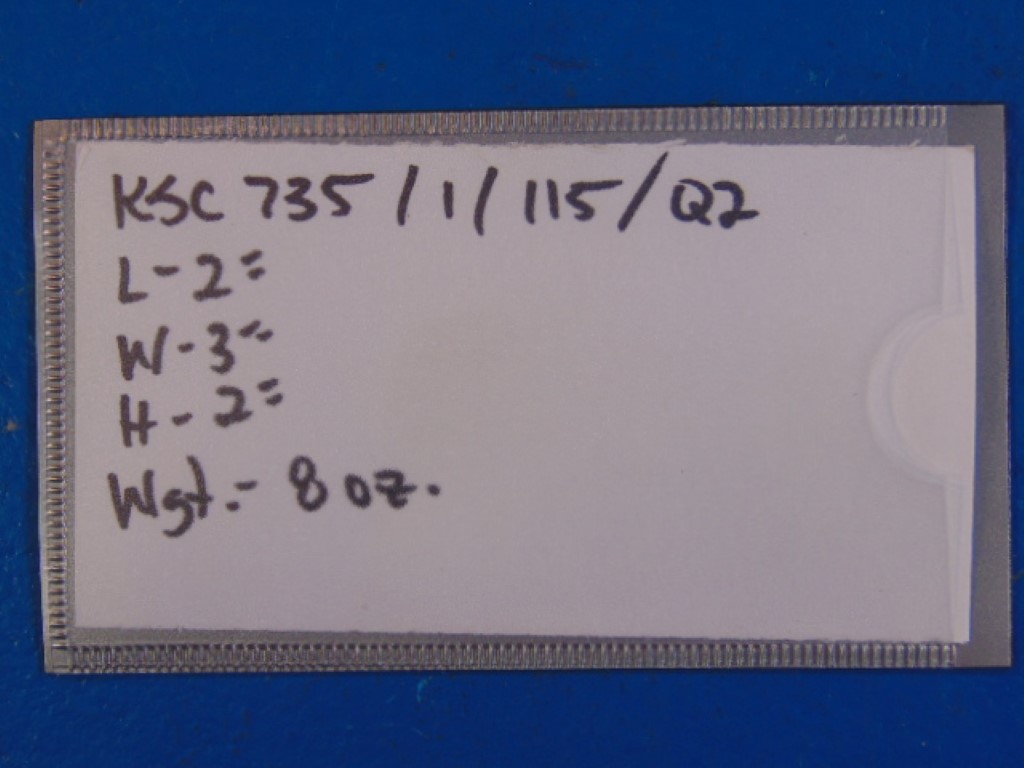 KSC 735 / 1 / 115 / Q2
L - 2"
W - 3"
H - 2"
Wgt. - 8 oz.